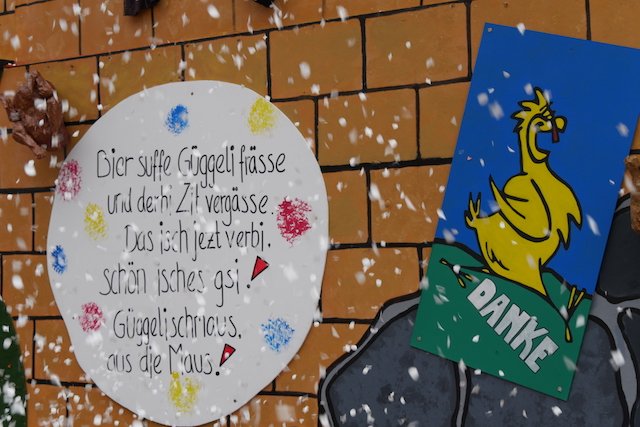 Bier suffe Güggeli frässe
und derbi Zit vergässe.
Das isch jezt verbi,
schön isches gsi!
Güggelischmaus,
aus die Maus!
DANKE